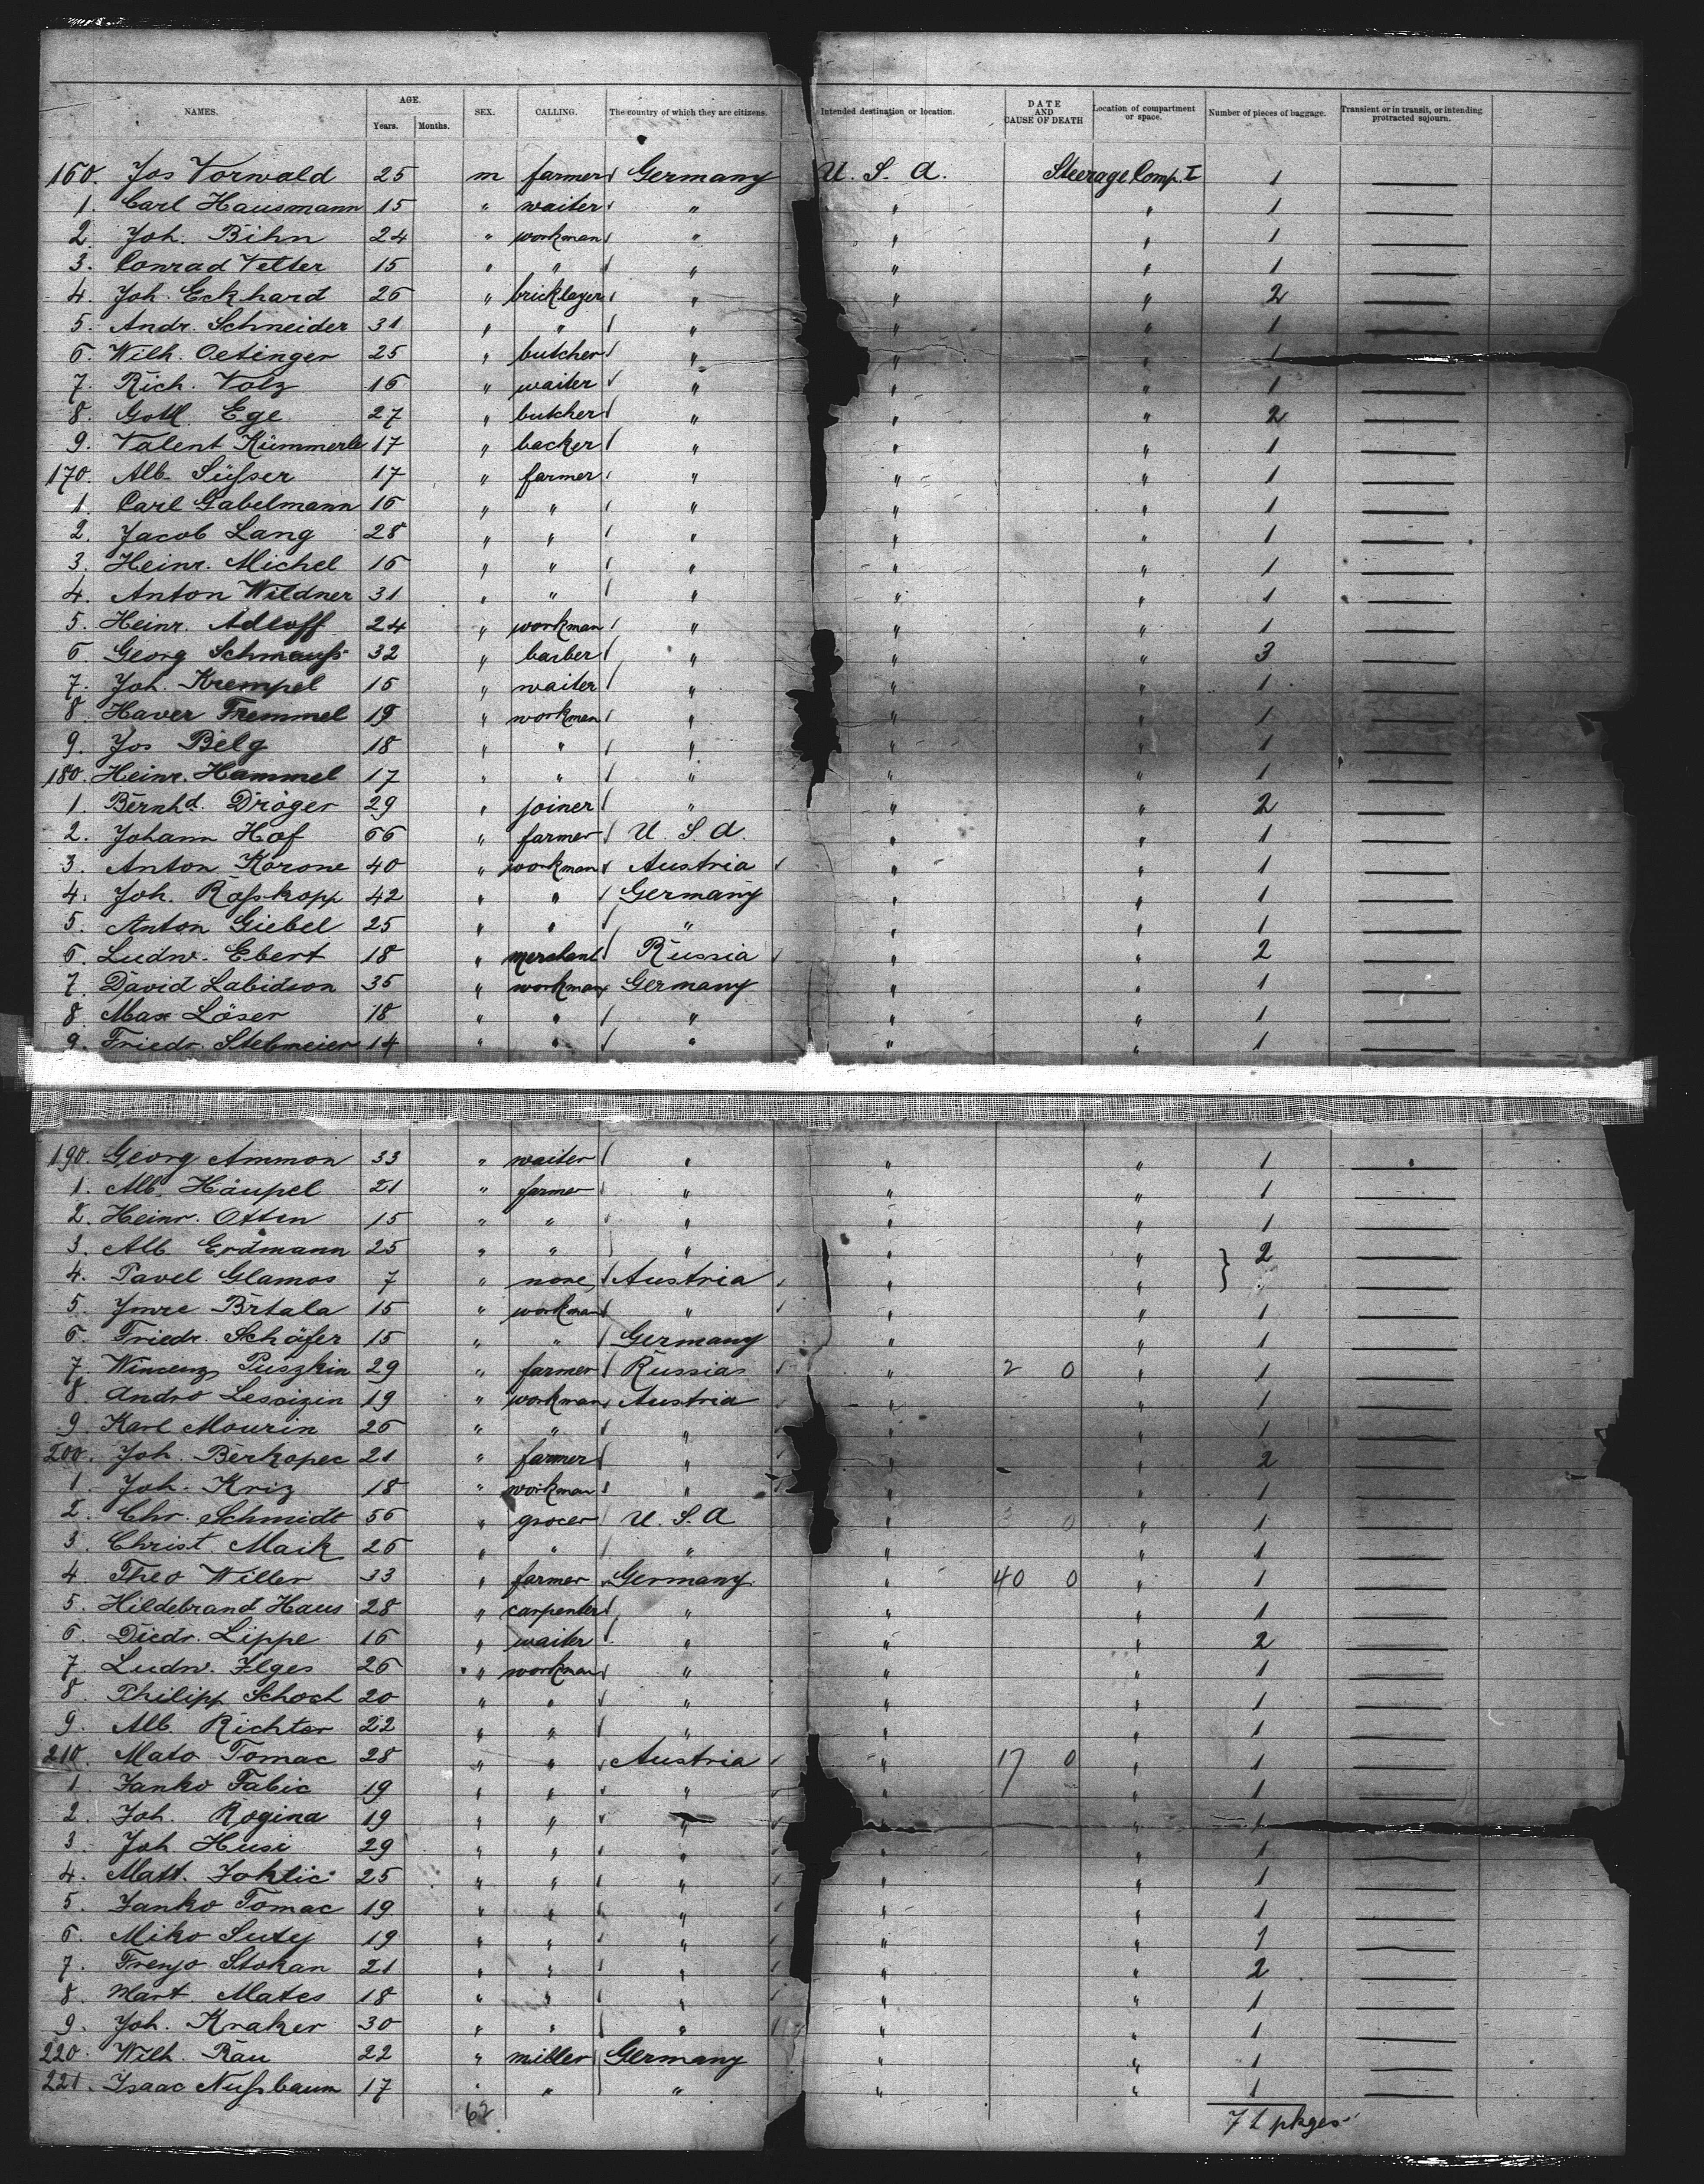 NAMES. AGE. Years. Months. SEX. CALLING. The country of which they are citizens. Intended destination or location. DATE AND CAUSE OF DEATH Location of compartment or space. Number of pieces of baggage. Transient or in transit, or intending protracted sojourn.
160. Jos Vorwald 25 m farmer Germany U. S. A. Steerage Comp. I 1 —
1. Carl Hausmann 15 " waiter " " " 1 —
2. Joh. Bihn 24 " workman " " " 1 —
3. Conrad Vetter 15 " " " " " 1 —
4. Joh. Eckhard 26 " bricklayer " " " 2 —
5. Andr. Schneider 31 " " " " " 1 —
6. Wilh. Oetinger 25 " butcher " " " 1 —
7. Rich. Volz 16 " waiter " " " 1 —
8. Gottl. Ege 27 " butcher " " " 2 —
9. Valent Kümmerle 17 " backer " " " 1 —
170. Alb. Süßser 17 " farmer " " " 1 —
1. Carl Gabelmann 16 " " " " " 1 —
2. Jacob Lang 28 " " " " " 1 —
3. Heinr. Michel 16 " " " " " 1 —
4. Anton Wildner 31 " " " " " 1 —
5. Heinr. Adloff 24 " workman " " " 1 —
6. Georg Schmauß 32 " barber " " " 3 —
7. Joh. Krempel 15 " waiter " " " 1 —
8. Haver Fremmel 19 " workman " " " 1 —
9. Jos Belg 18 " " " " " 1 —
180. Heinr. Hammel 17 " " " " " 1 —
1. Bernhd. Dröger 29 " joiner " " " 2 —
2. Johann Hof 66 " farmer U. S. A. " " 1 —
3. Anton Korone 40 " workman Austria " " 1 —
4. Joh. Roßkopp 42 " " Germany " " 1 —
5. Anton Giebel 25 " " " " " 1 —
6. Ludw. Ebert 18 " merchant Russia " " 2 —
7. David Labidson 35 " workman Germany " " 1 —
8. Max Löser 18 " " " " " 1 —
9. Friedr. Stebmeier 14 " " " " " 1 —
190. Georg Ammon 33 " waiter " " " 1 —
1. Alb. Häupel 21 " farmer " " " 1 —
2. Heinr. Otten 15 " " " " " 1 —
3. Alb. Erdmann 25 " " " " " } 2 —
4. Pavel Glamos 7 " none, Austria " " " —
5. Imre Brtala 15 " workman " " " 1 —
6. Friedr. Schäfer 15 " " Germany " " 1 —
7. Wincenz Puszkin 29 " farmer Russia " 2 0 " 1 —
8. Andro 19 " workman Austria " " 1 —
9. Karl Mourin 26 " " " " " 1 —
200. Joh. Berkopec 21 " farmer " " " 2 —
1. Joh. Kriz 18 " workman " " " 1 —
2. Chr. Schmidt 56 " grocer U. S. A " 3 0 " 1 —
3. Christ. Maik 26 " " " " " 1 —
4. Theo Willer 33 " farmer Germany " 40 0 " 1 —
5. Hildebrand Haus 28 " carpenter " " " 1 —
6. Diedr. Lippe 16 " waiter " " " 2 —
7. Ludw. Ilges 26 " workman " " " 1 —
8. Philipp Schoch 20 " " " " " 1 —
9. Alb. Richter 22 " " " " " 1 —
210. Mato Tomac 28 " " Austria " 17 0 " 1 —
1. Janko Fabic 19 " " " " " 1 —
2. Joh. Rogina 19 " " " " " 1 —
3. Joh Husi 29 " " " " " 1 —
4. Matt. Joklic 25 " " " " " 1 —
5. Janko Tomac 19 " " " " " 1 —
6. Miko Suty 19 " " " " " 1 —
7. Frenjo Stokan 21 " " " " " 2 —
8. Mart. Mates 18 " " " " " 1 —
9. Joh. Kraker 30 " " " " " 1 —
220. Wilh. Rau 22 " miller Germany " " 1 —
221. Isaac Nußbaum 17 " " " " " 1 —
62 71 pkges